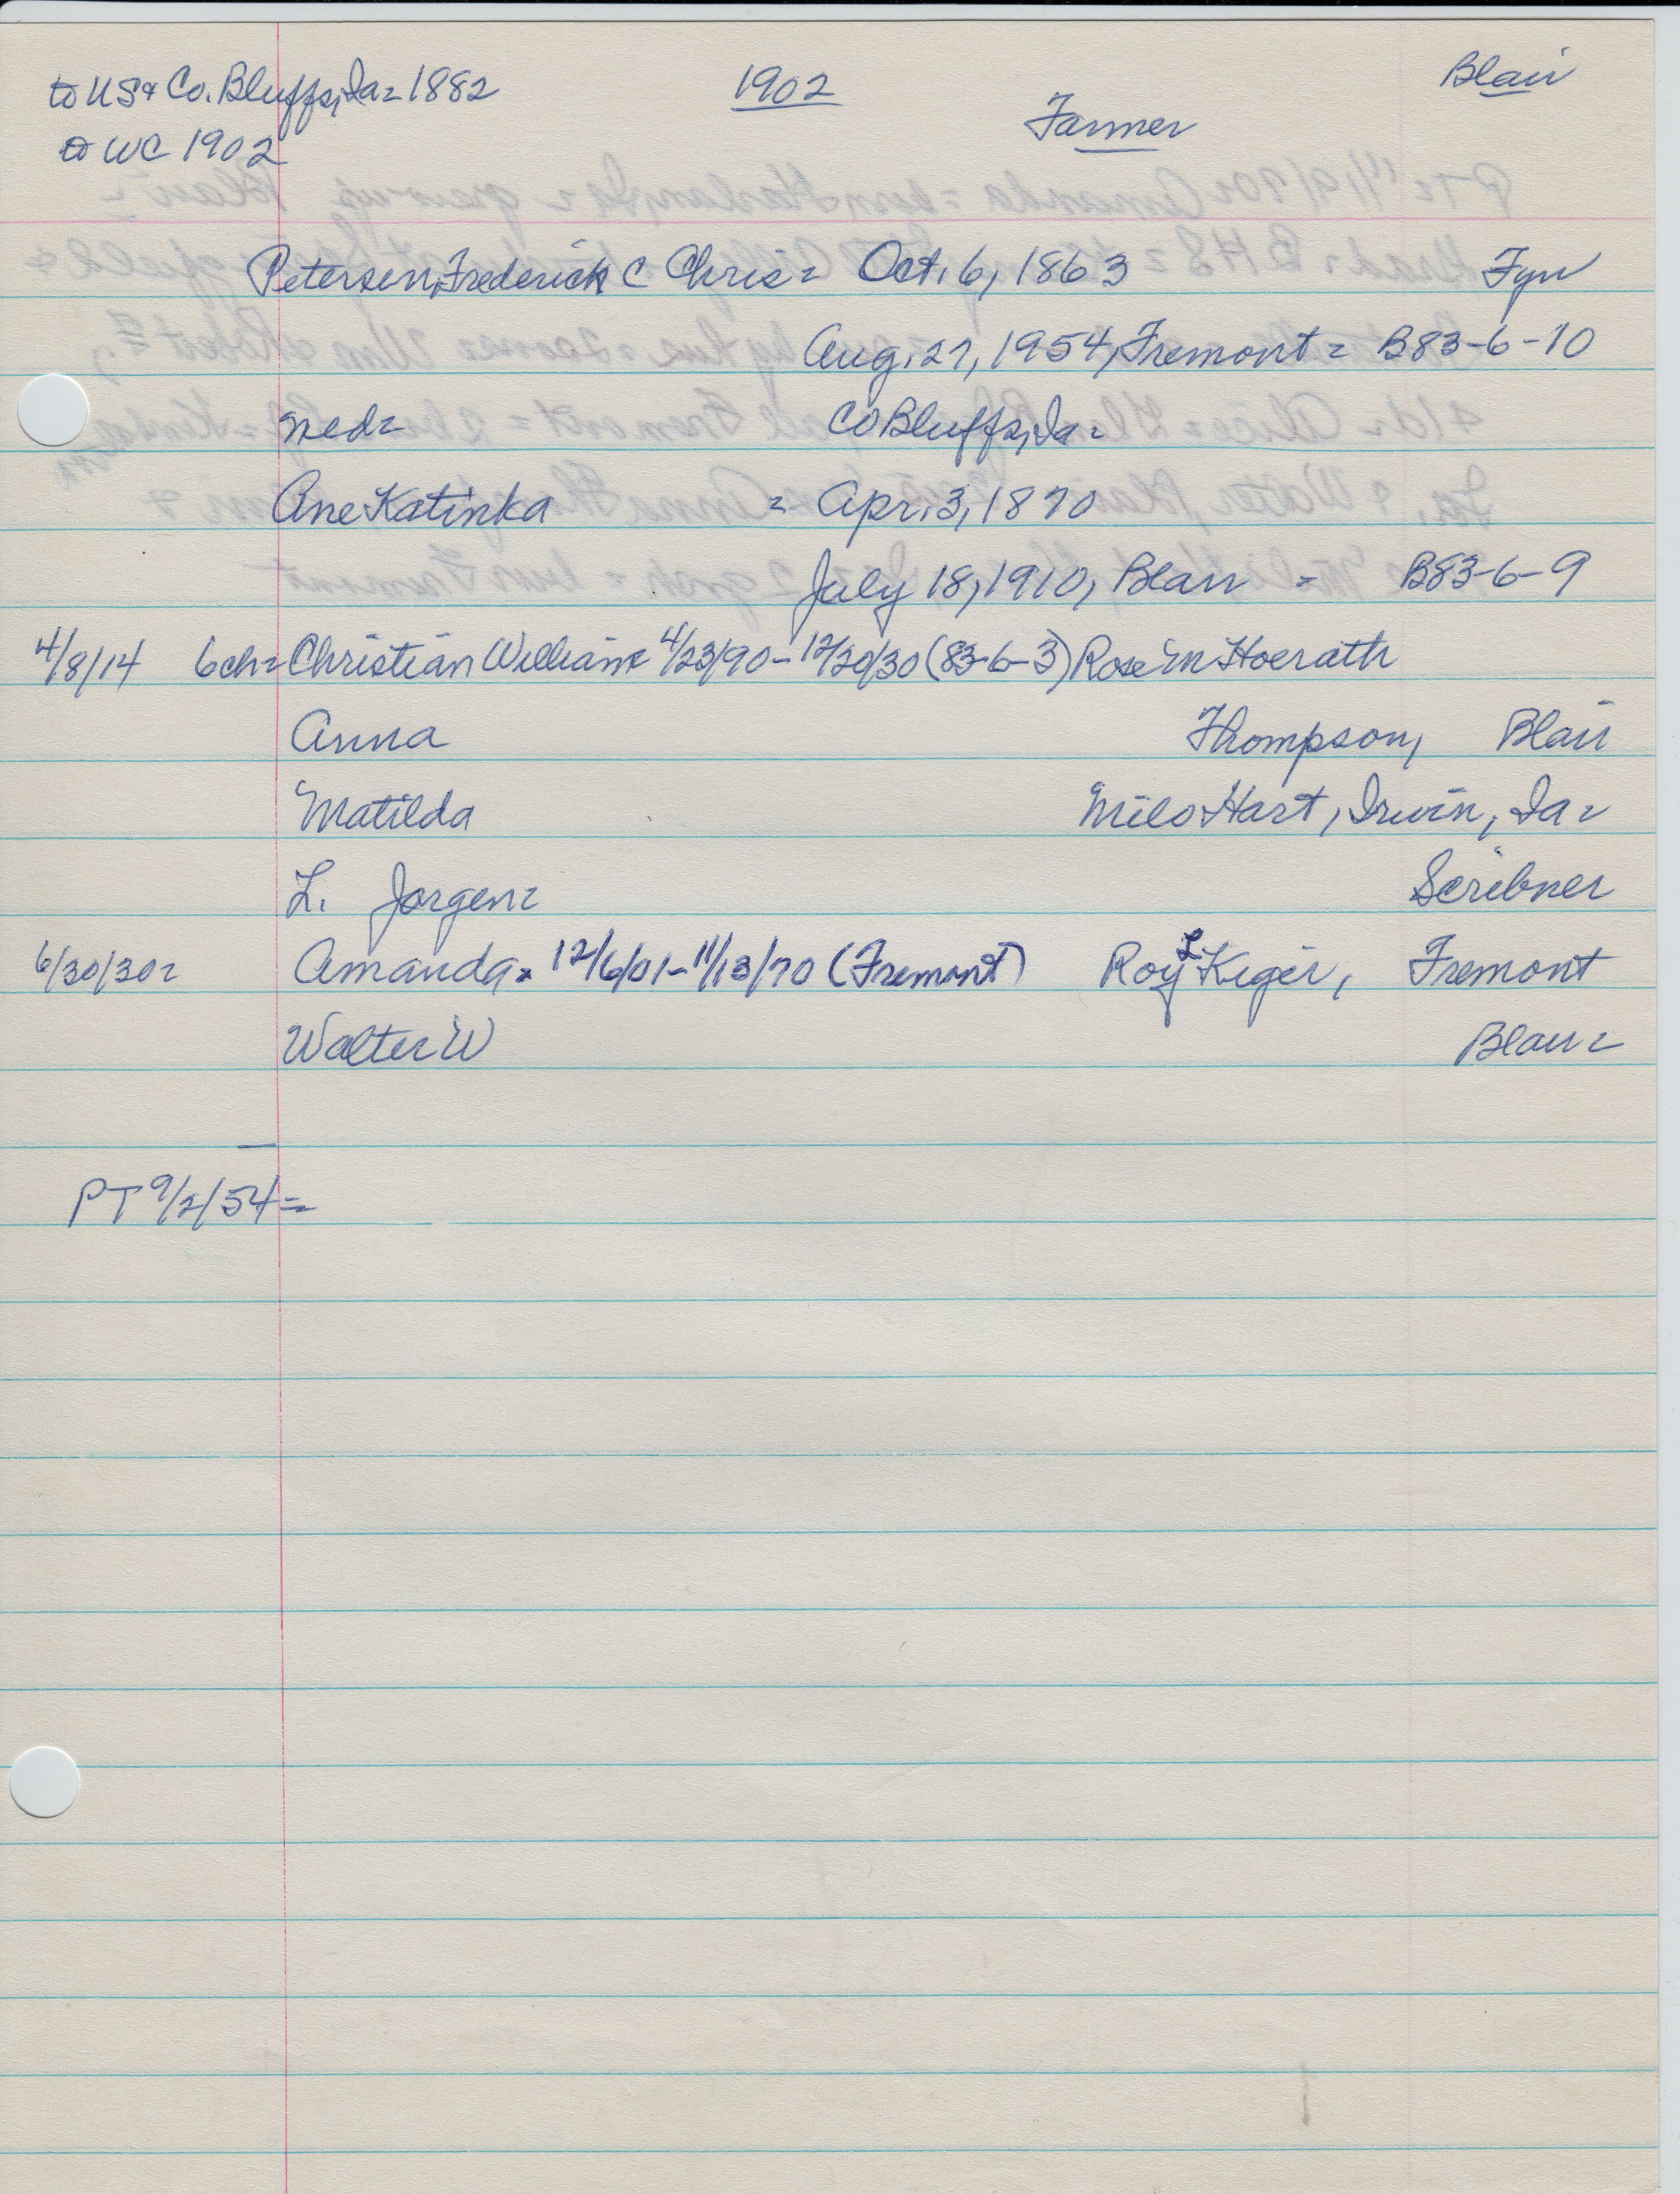 to US & Co. Bluffs, Ia = 1882 1902 Blair
Farmer
to WC 1902
Petersen, Frederick C Chris = Oct. 6, 1863 Fyn
Aug. 27, 1954, Fremont = B83-6-10
med = CO Bluffs, Ia =
Ane Katinka = Apr. 3, 1870
July 18, 1910, Blair = B83-6-9
4/8/14 6ch = Christian William = 4/23/90 - 12/20/30 (83-6-3) Rose M Hoerath
Anna Thompson, Blair
Matilda Milo Hart, Irwin, Ia =
L. Jorgen = Scribner
6/30/30 = Amanda = 12/6/01 - 11/13/70 (Fremont) Roy L Keger, Fremont
Walter W Blair =
PT 9/2/54 =